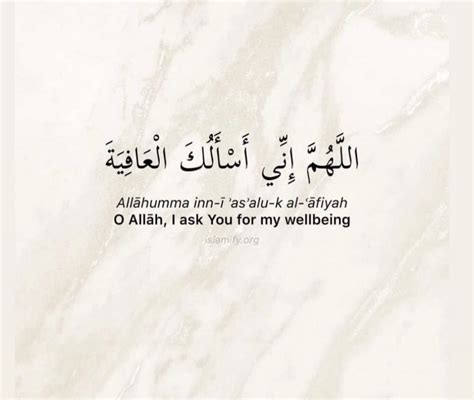 اللَّهُمَّ إِنِّي أَسْأَلُكَ الْعَافِيَةَ
Allāhumma inn-ī ʾasʾalu-k al-ʿāfiyah
O Allāh, I ask You for my wellbeing
islam-ify.org